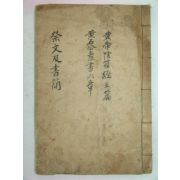 黃帝陰符經三篇
黃石公素書六章
祭文及書簡